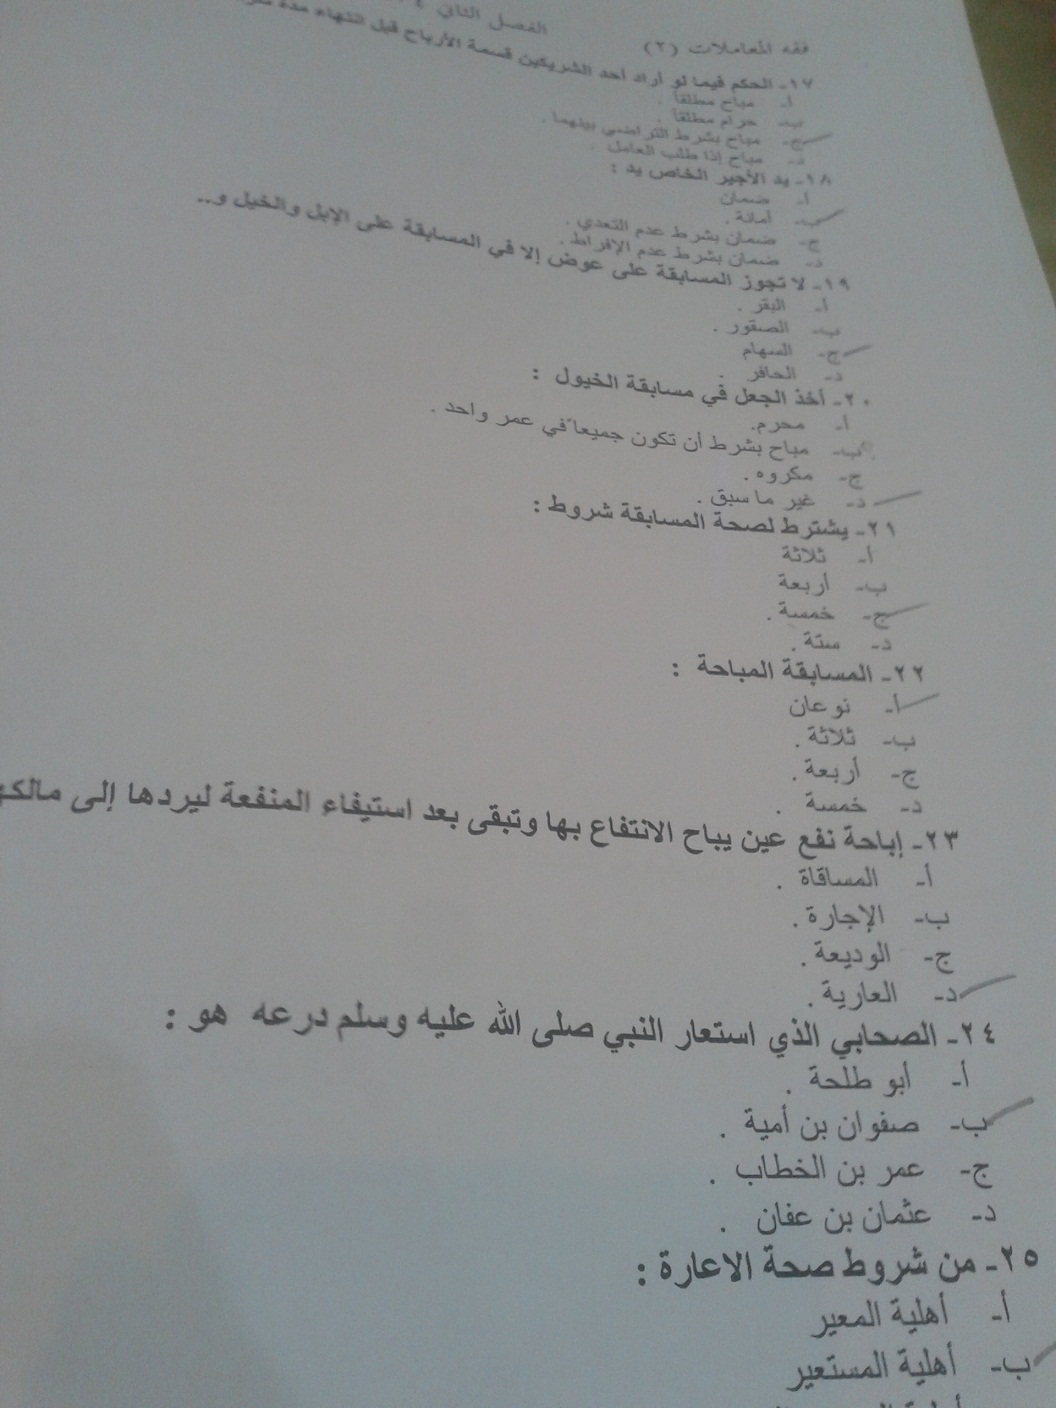 فقه المعاملات (٢)
الفصل الثاني
١٧- الحكم فيما لو أراد أحد الشريكين قسمة الأرباح قبل انتهاء مدة
أ- مباح مطلقا .
ب- حرام مطلقا .
ج- مباح بشرط التراضي بينهما .
د- مباح إذا طلب العامل .
١٨- يد الأجير الخاص يد :
أ- ضمان
ب- أمانة .
ج- ضمان بشرط عدم التعدي .
د- ضمان بشرط عدم الإفراط .
١٩- لا تجوز المسابقة على عوض إلا في المسابقة على الإبل والخيل و..
أ- البقر .
ب- الصقور .
ج- السهام
د- الحافر .
٢٠- أخذ الجعل في مسابقة الخيول :
أ- محرم.
ب- مباح بشرط أن تكون جميعاً في عمر واحد .
ج- مكروه .
د- غير ما سبق .
٢١- يشترط لصحة المسابقة شروط :
أ- ثلاثة
ب- أربعة
ج- خمسة .
د- ستة .
٢٢- المسابقة المباحة :
أ- نوعان
ب- ثلاثة .
ج- أربعة .
د- خمسة .
٢٣- إباحة نفع عين يباح الانتفاع بها وتبقى بعد استيفاء المنفعة ليردها إلى مالكه
أ- المساقاة .
ب- الإجارة .
ج- الوديعة .
د- العارية .
٢٤- الصحابي الذي استعار النبي صلى الله عليه وسلم درعه هو :
أ- أبو طلحة .
ب- صفوان بن أمية .
ج- عمر بن الخطاب .
د- عثمان بن عفان .
٢٥- من شروط صحة الاعارة :
أ- أهلية المعير
ب- أهلية المستعير